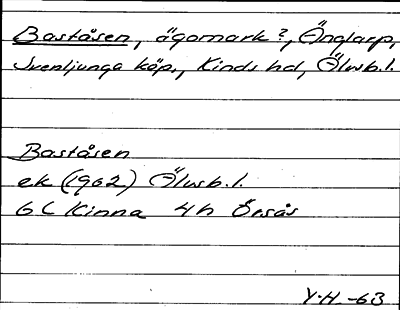 Baståsen, ägomark?, Änglarp,
Svenljunga köp., Kinds hd, Älvsb.l.
Baståsen
ek (1962) Älvsb.l.
6C Kinna 4h Örsås
Y.H.-63